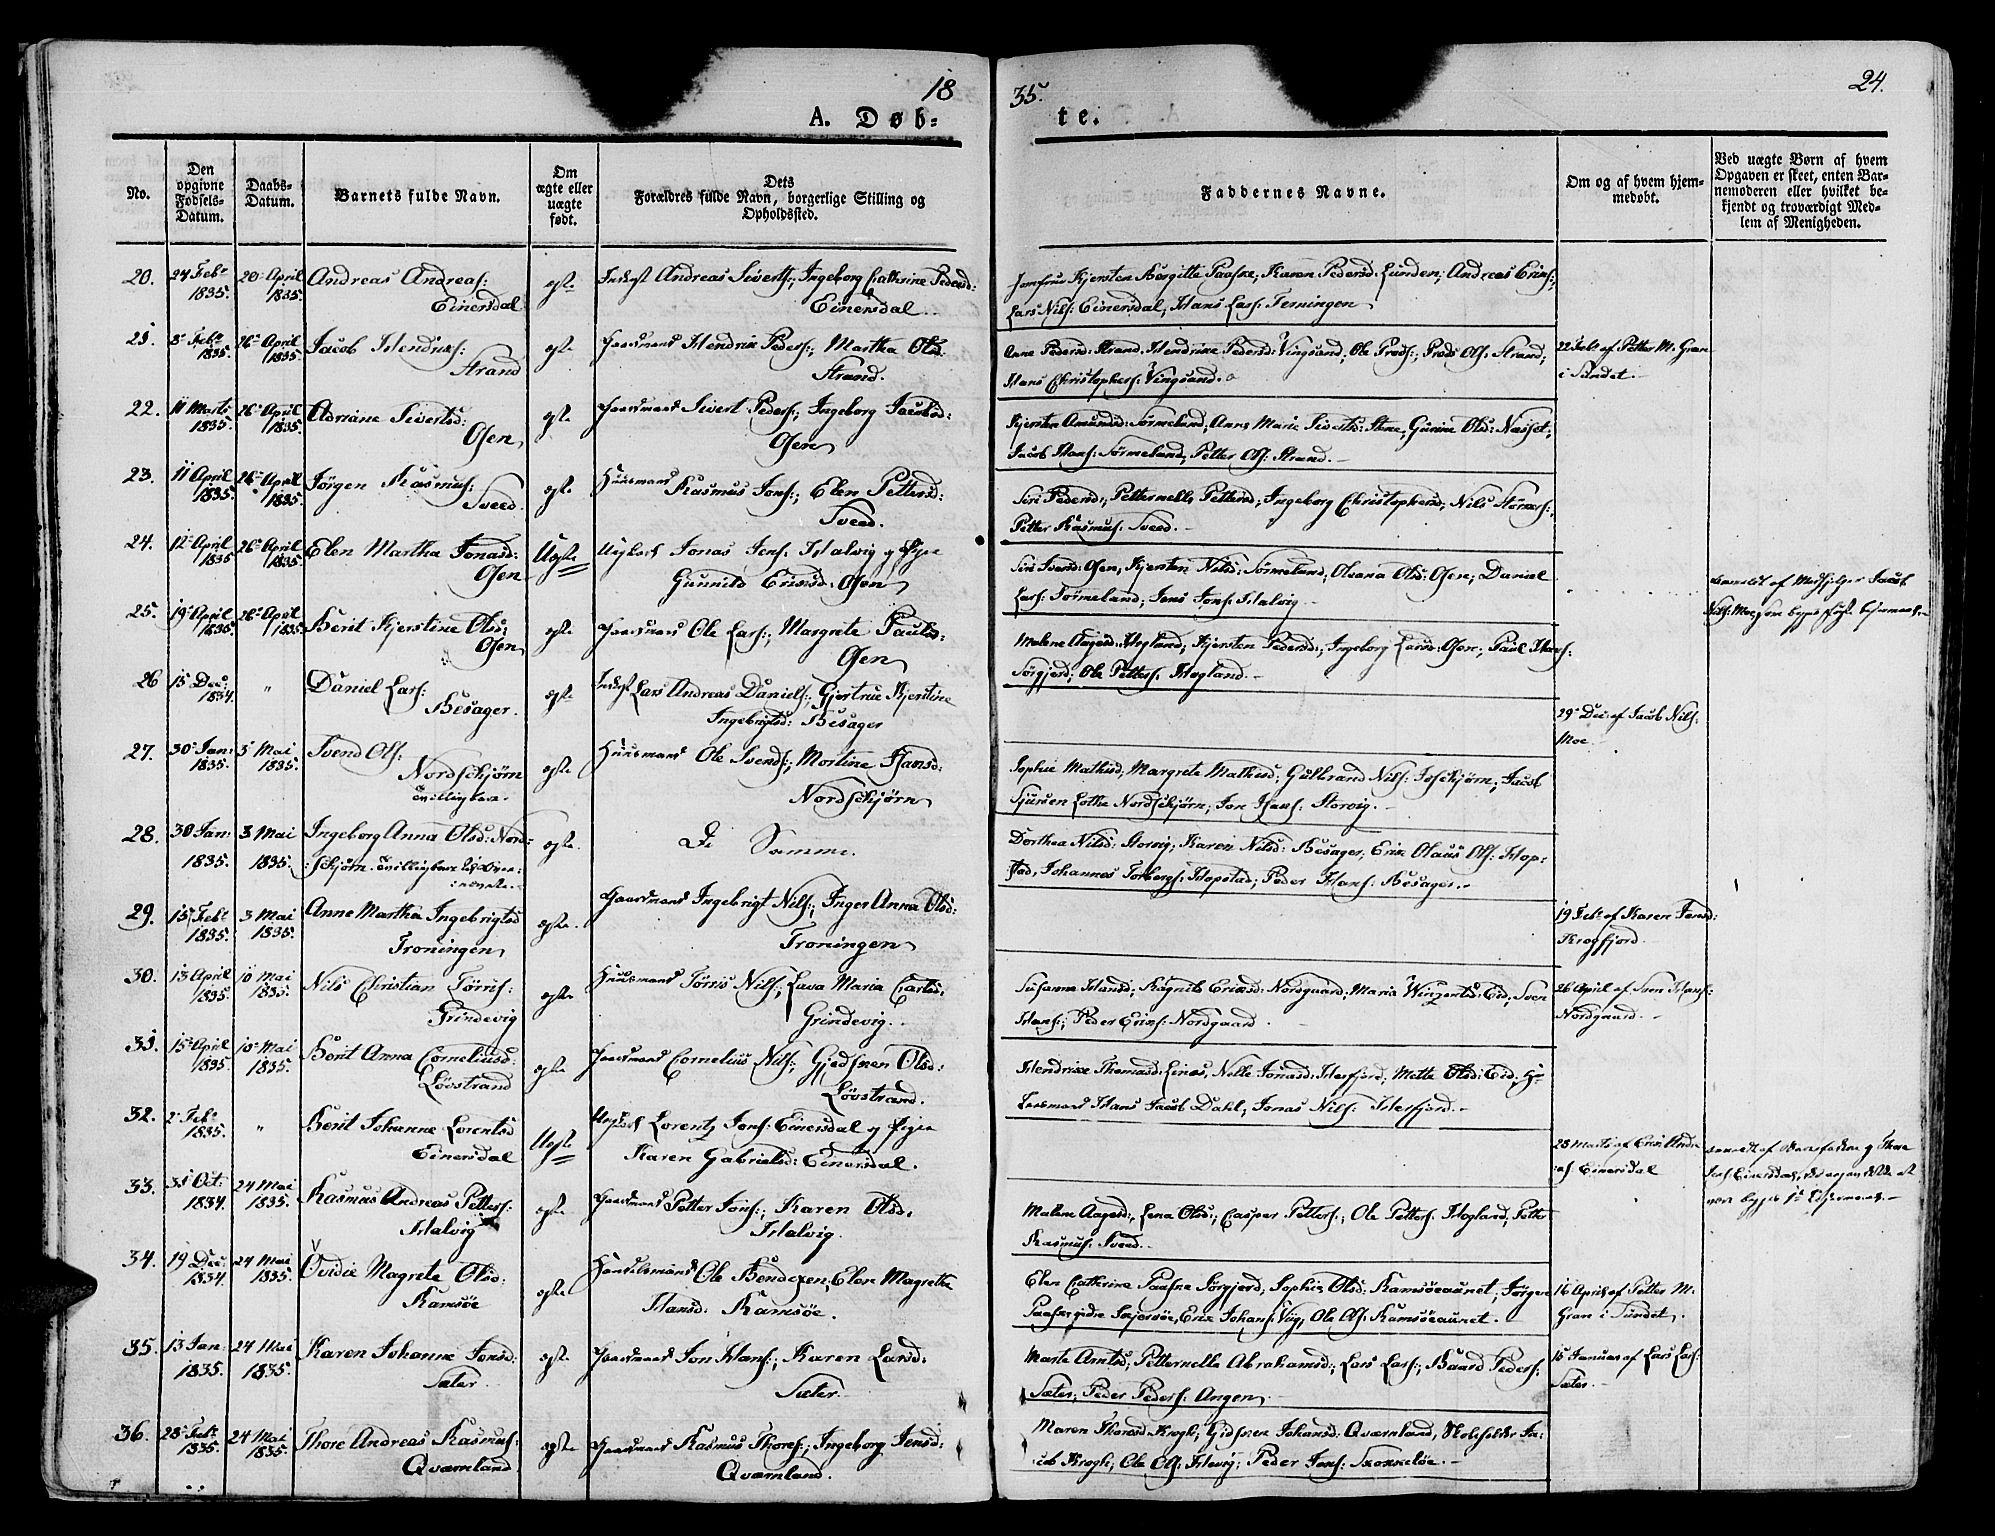 18
35.
24.
A. Døb-
te.
No.
Den opgivne Fødsels-Datum.
Daabs-Datum.
Barnets fulde Navn.
Om ægte eller uægte født.
Dets Forældres fulde Navn, borgerlige Stilling og Opholdssted.
Faddernes Navne.
Om og af hvem hjem-
medøbt.
Ved uægte Børn af hvem
Opgaven er skeet, enten Bar-
nemoderen eller hvilket be-
kjendt og troværdigt Med-
lem af Menigheden.
20. 24 Febr 1835. 20 April 1835. Andreas Andreas: Einersdal egte Andreas Siverts:, Ingeborg Cathrine Pedersd: Einersdal
Jomfrue Kjersten Birgitte Paaske, Karen Pedersd: Lunden, Andreas Erics:,
Lars Nils: Einersdal, Hans Lars: Terningen
21. 8 Febr 1835. 26 April 1835. Jacob Hendrics: Strand egte Gaardmand Hendrik Peders:, Martha Olsd: Strand.
Anne Pedersd: Strand, Hendrikke Pedersd: Vingsand, Ole Prods:, Prods Ols: Strand,
Hans Christophers: Vingsand.
22 Febr af Petter M. Gran
i Sundet.
22. 11 Marts 1835. 26 April 1835. Adriane Sivertsd: Osen egte Gaardmand Sivert Peders:, Ingeborg Jacobsd: Osen
Kjersten Amundsd: Sørmeland, Anne Marie Sivertsd: Stene, Gurine Olsd: Næsset,
Jacob Hans: Sørmeland, Petter Ols: Strand.
23. 11 April 1835. 26 April 1835. Jørgen Rasmus: Sveed. egte Huusmand Rasmus Jons:, Elen Pettersd: Sveed.
Siri Pedersd:, Petternelle Pettersd:, Ingeborg Christophersd:, Nils
Petter Rasmus: Sveed.
24. 12 April 1835 26 April 1835. Elen Martha Jonasd: Osen Uegte Ungkarl Jonas Jens: Halvig og Pige Gunnild Ericsd: Osen
Siri Svensd: Osen, Kjersten Nilsd: Sørmeland, Oleana Olsd: Osen, Daniel
Lars: Sørmeland, Jens Jons: Halvig
af Medhjelper Jacob
Nils: Moe,
25. 19 April 1835. 26 April 1835. Berit Kjerstine Olsd: Osen egte Gaardmand Ole Lars:, Margrete Paulsd: Osen
Malene Aagesd: Hegland, Kjersten Pedersd:, Ingeborg Larsd: Osen, Paul Hans:
Sørgjerd, Ole Petters: Hegland.
26 15 Dec: 1834. " Daniel Lars: Besager. egte Lars Andreas Daniels:, Gjertrue Kjerstine Ingebrigtsd: Besager
29 Dec: af Jacob Nils:
Moe
27. 30 Jan: 1835. 3 Mai 1835. Svend Ols: Nordschjørn Tvillingbarn. egte Huusmand Ole Svends:, Martine Hansd: Nordschjørn
Sophie Mathisd:, Margrete Mathisd:, Gulbrand Nils: Schjørn, Jacob
Lothe Nordschjørn, Jon Hans: Storvig.
28. 30 Jan: 1835. 3 Mai 1835. Ingeborg Anna Olsd: Nord-
schjørn. Tvillingbarn egte. De Samme.
Dorthea Nilsd: Storvig, Karen Nilsd: Besager, Eric Olaus Ols: Hop-
stad, Johannes Torbergs: Hopstad, Peder Hans: Besager.
29. 15 Febr 1835. 3 Mai 1835. Anne Martha Ingebrigtsd Troningen egte. Gaardmand Ingebrigt Nils:, Inger Anna Olsd: Troningen
19 Febr af Karen Jensd:
Krogfjord.
30. 13 April 1835. 10 Mai 1835. Nils Christian Tørris: Grindevig egte Huusmand Tørris Nils:, Lava Maria Carlsd: Grindevig.
Susanna Hansd:, Ragnild Ericsd: Nordgaard, Maria Winzentsd: Eid, Sven
Hans:, Peder Erics: Nordgaard.
26 April af Sven Hans:
Nordgaard.
31. 15 April 1835. 10 Mai 1835. Berit Anna Corneliusd: Løvstrand egte Gaardmand Cornelius Nils:, Gjedsken Olsd: Løvstrand.
Hendrikke Thomasd: Lines, Nelle Jonasd: Herfjord, Mette Olsd: Eid,
Hans Jacob Dahl, Jonas Nils: Herfjord.
32. 2 Febr 1835. " Berit Johanne Lorentsd Einersdal Uegte Ungkarl Lorentz Jons: Einersdal og Pige Karen Gabrielsd: Einersdal.
28 Marts af Eric
Einersdal
af Barnefaderen og Thore
33. 31 Oct: 1834. 24 Mai 1835. Rasmus Andreas Petters: Halvig egte Gaardmand Petter Jons:, Karen Olsd: Halvig.
Malene Aagesd:, Lena Olsd:, Casper Petters:, Ole Petters: Hegland, Petter
Rasmus: Sveed.
34. 19 Dec: 1834. 24 Mai 1835. Ovidie Magrete Olsd: Ramsøe egte Handelsmand Ole Bendixen, Elen Magretha Hansd: Ramsøe.
Elen Cathrine Paaske Sørgjerd, Sophie Olsd: Ramsøeaunet, Jørgen
Eric Johans: Viig, Ole Ols: Ramsøeaunet.
16 April af Petter M.
Gran i Sundet.
35. 13 Jan 1835. 24 Mai 1835. Karen Johanne Jonsd: Sæter. egte Gaardmand Jon Hans:, Karen Larsd: Sæter.
Marte Arntsd:, Petternelle Abrahamsd:, Lars Lars:, Baard Peders:
Sæter, Peder Peders: Angen
15 Januar af Lars Lars:
Sæter.
36. 28 Febr 1835. 24 Mai 1835. Thore Andreas Rasmus: Qværnland egte Gaardmand Rasmus Thores:, Ingeborg Jensd: Qværnland.
Maren Thoresd: Krogh, Gidsken Johansd: Qværnland, Skoleholder Ja-
cob Krogh, Ole Ols: Hevig, Peder Jons: